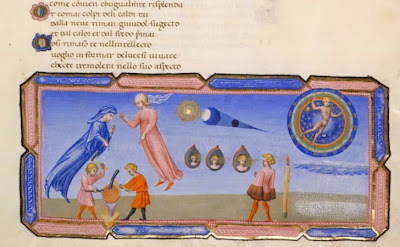 come conuien chugualmēte risplenda
Or comai colpi deli caldi rai
dalla neue riman gnudol sugecto
et dal calor et dal fredo primai
Cosi rimaso te nellintellecto
voglio informar deluce si uiuace
chette tremolera nello suo aspecto